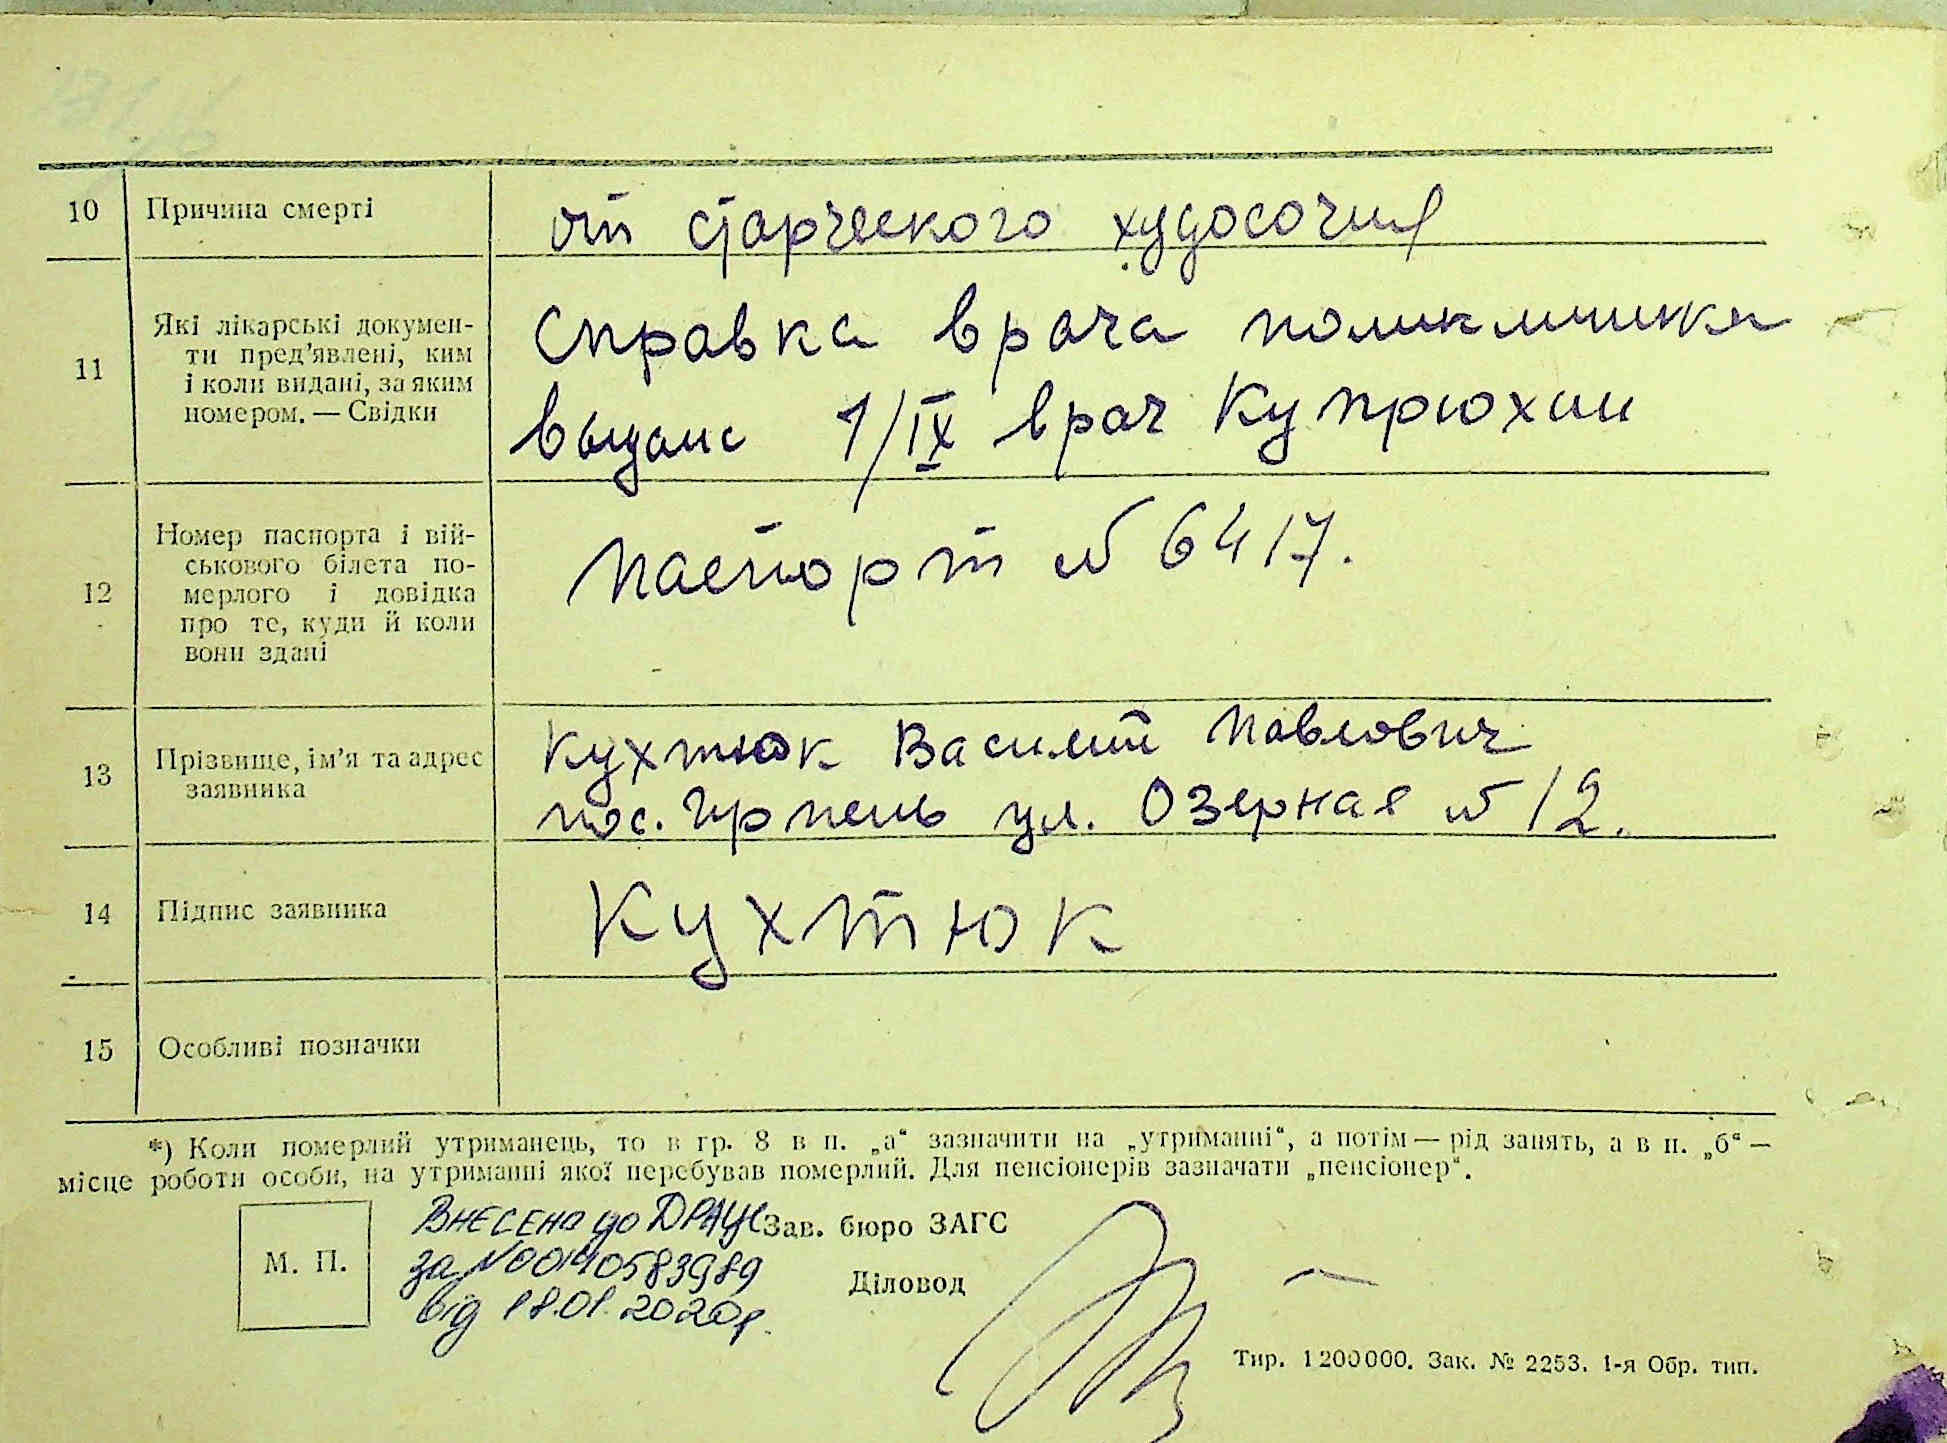 10 Причина смерті
от старческого худосочия
11 Які лікарські докумен-
ти пред'явлені, ким
і коли видані, за яким
номером. — Свідки
справка врача поликлиники
выдана 1/IX врач Купрюхин
12 Номер паспорта і вій-
ськового білета по-
мерлого і довідка
про те, куди й коли
вони здані
Паспорт № 6417.
13 Прізвище, ім'я та адрес
заявника
Кухтюк Василий Павлович
пос. Ирпень ул. Озерная № 12.
14 Підпис заявника
Кухтюк
15 Особливі позначки
*) Коли померлий утриманець, то в гр. 8 в п. „а“ зазначити на „утриманні“, а потім — рід занять, а в п. „б“ —
місце роботи особи, на утриманні якої перебував померлий. Для пенсіонерів зазначати „пенсіонер“.
М. П.
Внесена до ДРАЦС
за №00140583989
від 18.01.2020р.
Зав. бюро ЗАГС
Діловод
Тир. 1200000. Зак. № 2253. 1-я Обр. тип.